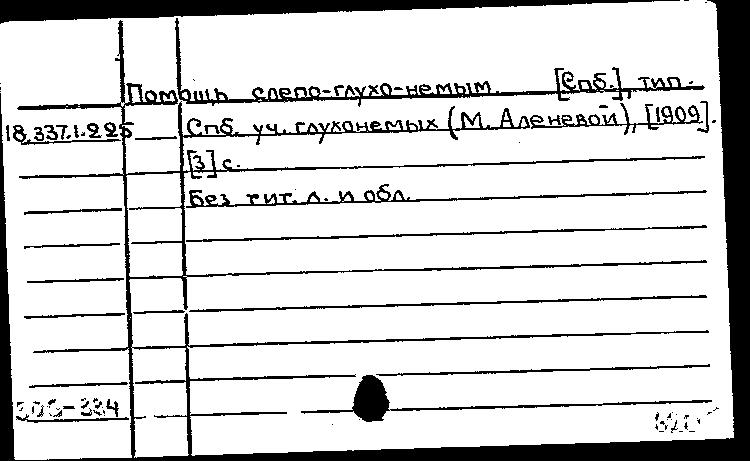 Помощь слепо-глухо-немым. [Спб.], тип.
18.337.1.225 Спб. уч. глухонемых (М. Аленевой), [1909].
[3] с.
Без тит. л. и обл.